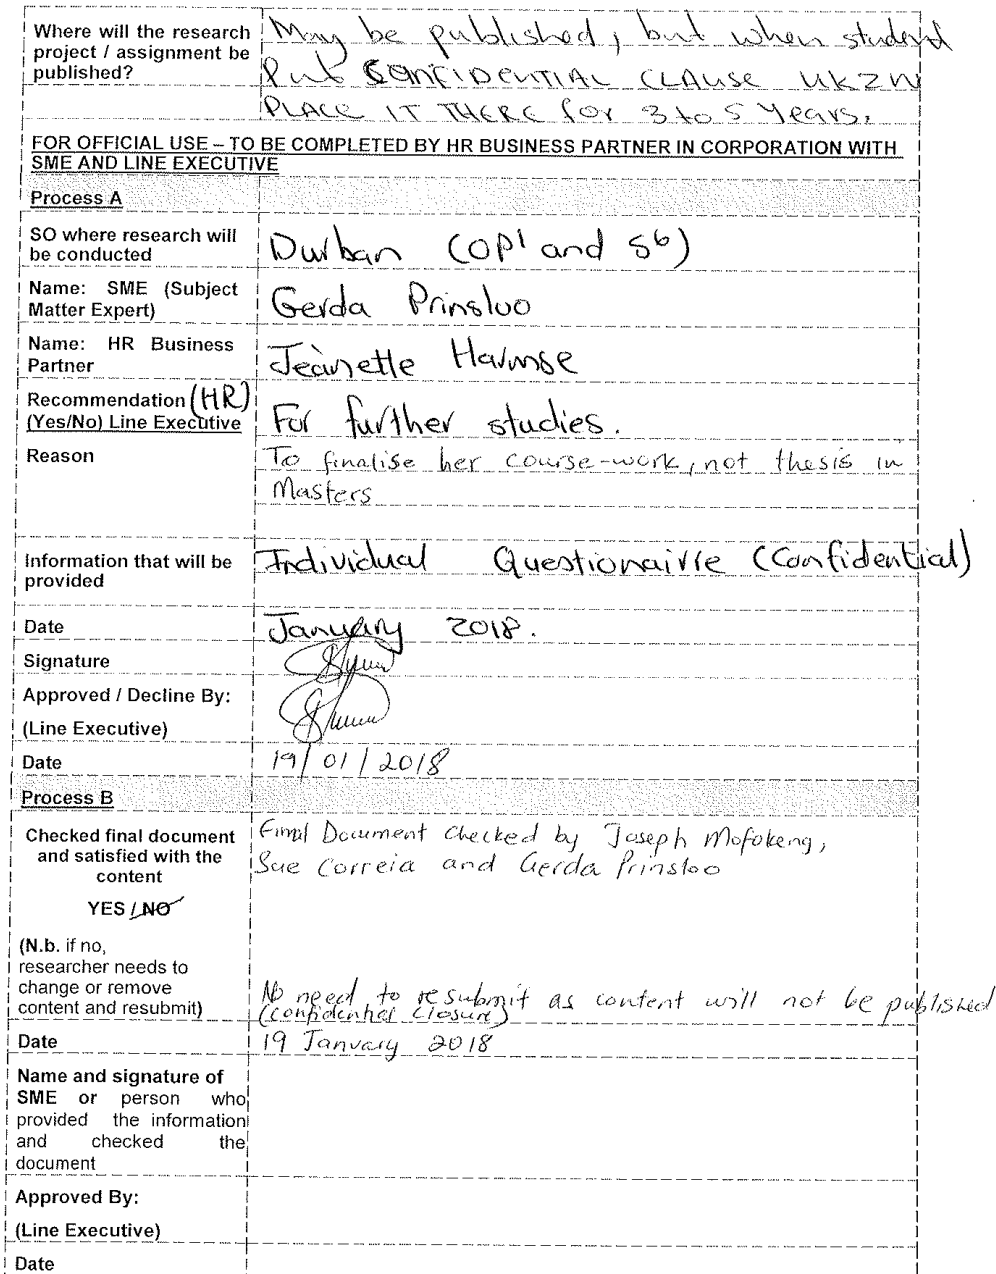 Where will the research project / assignment be published?
May be published, but when student
Put CONFIDENTIAL CLAUSE UKZN
PLACE IT THERE for 3 to 5 Years.
FOR OFFICIAL USE – TO BE COMPLETED BY HR BUSINESS PARTNER IN CORPORATION WITH
SME AND LINE EXECUTIVE
Process A
SO where research will
be conducted
Durban (OP1 and S6)
Name: SME (Subject
Matter Expert)
Gerda Prinsloo
Name: HR Business
Partner
Jeanette Harmse
Recommendation (HR)
(Yes/No) Line Executive
For further studies.
Reason
To finalise her course-work, not thesis in
Masters
Information that will be
provided
Individual Questionairre (Confidential)
Date
January 2018.
Signature
Approved / Decline By:
(Line Executive)
Date
19/01/2018
Process B
Checked final document
and satisfied with the
content
YES / NO
(N.b. if no,
researcher needs to
change or remove
content and resubmit)
Final Document checked by Joseph Mofokeng,
Sue Correia and Gerda Prinsloo
No need to resubmit as content will not be published
(confidential closure)
Date
19 January 2018
Name and signature of
SME or person who
provided the information
and checked the
document
Approved By:
(Line Executive)
Date